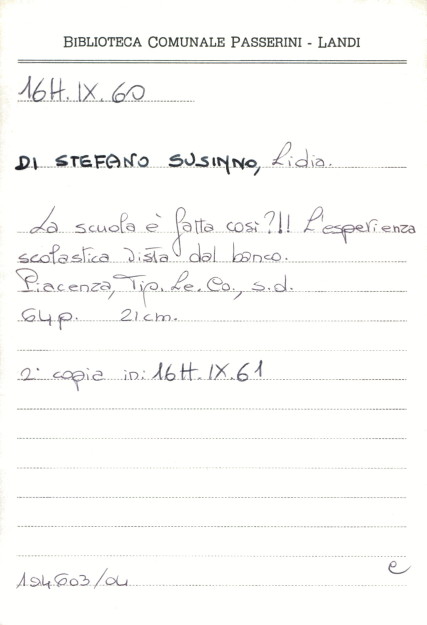 BIBLIOTECA COMUNALE PASSERINI - LANDI
16H.IX.60
DI STEFANO SUSINNO, Lidia.
La scuola è fatta così?!! L'esperienza
scolastica vista dal banco.
Piacenza, Tip. Le. Co., s.d.
64 p. 21 cm.
2ª copia in: 16H.IX.61
194603/04
e